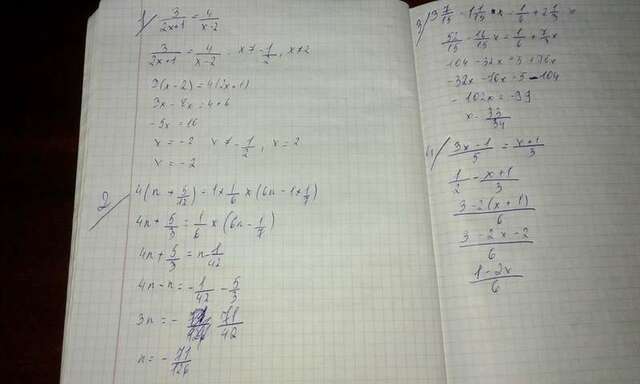 1) 3/(2x+1) = 4/(x-2)
3/(2x+1) = 4/(x-2) x ≠ -1/2, x ≠ 2
3(x-2) = 4(2x+1)
3x - 8x = 4+6
-5x = 10
x = -2 x ≠ -1/2, x = 2
x = -2
2) 4(n + 5/12) = 1 × 1/6 × (6n - 1 × 1/7)
4n + 5/3 = 1/6 × (6n - 1/7)
4n + 5/3 = n - 1/42
4n - n = -1/42 - 5/3
3n = - 71/42
n = - 71/126
3) 3 7/15 - 1 1/15 x - 1/6 + 2 1/3
52/15 - 16/15 x = 1/6 + 7/3 x
104 - 32x = 5 + 70x
-32x - 70x = 5 - 104
-102x = -99
x = 33/34
4) (3x-1)/5 = (x+1)/3
1/2 - (x+1)/3
(3-2(x+1))/6
(3-2x-2)/6
(1-2x)/6